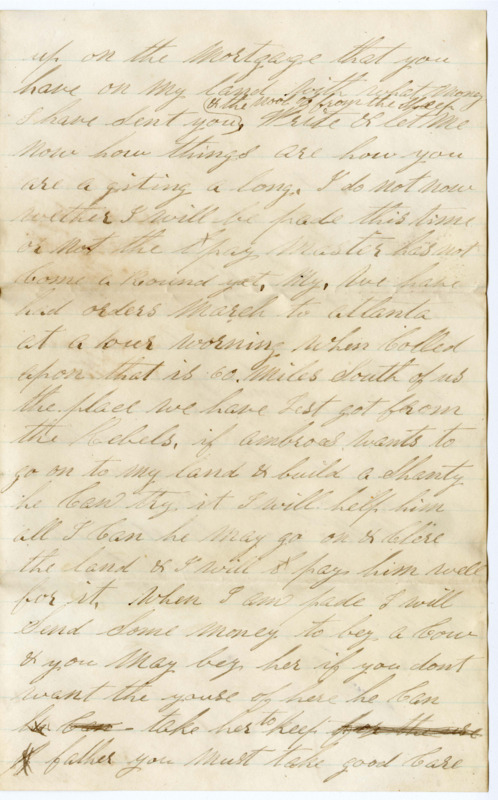 up on the Mortgage that you
have on my land with what Money
& the wool of from the Sheep
I have sent you, Write & let me
now how things are how you
are a giting a long. I do not now
wether I will be pade this time
or not the pay Master has not
Come a Round yet, we have
had orders March to atlanta
at a our worning when Colled
apon that is 60 Miles South of us
the place we have Jest got from
the Rebels, if ambros wants to
go on to my land & build a Shanty
he Can try it I will help him
all I Can he May go on & Clere
the land & I will pay him well
for it, When I am pade I will
Send Some money to bey a Cow
& you May bey her if you dont
want the youse of here he Can
he Can take her to keep for the use
father you must take good Care